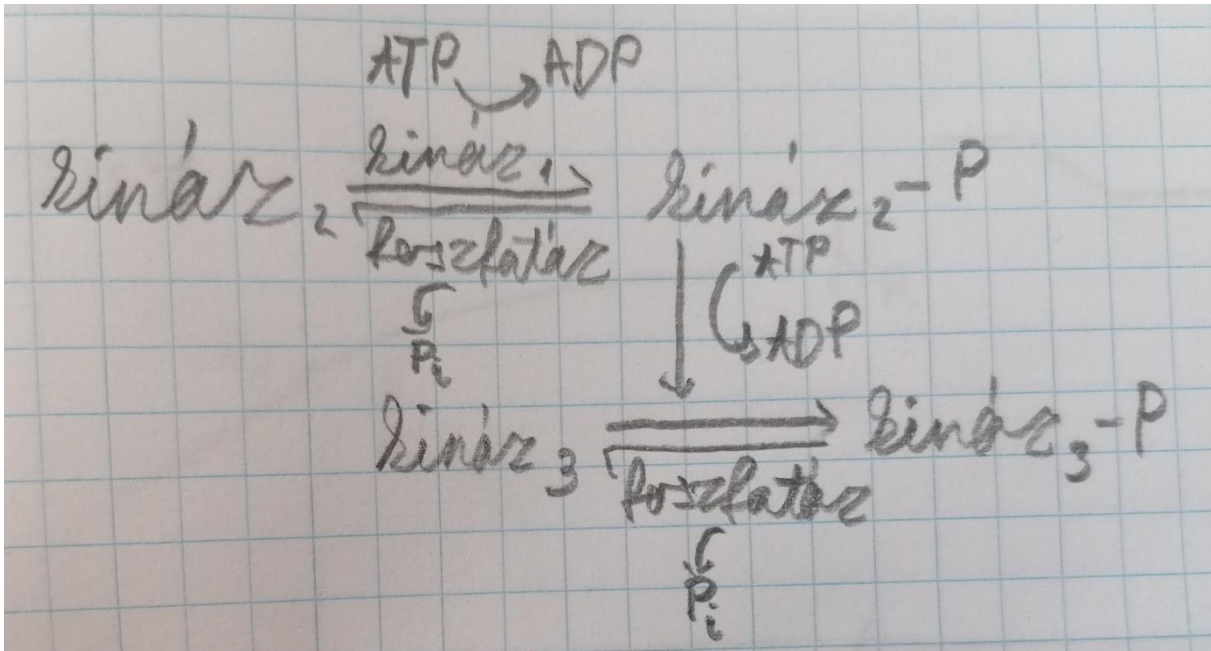 ATP ADP
kináz 1
kináz 2 kináz 2 - P
foszfatáz
ATP
Pi
ADP
kináz 3 kináz 3 - P
foszfatáz
Pi